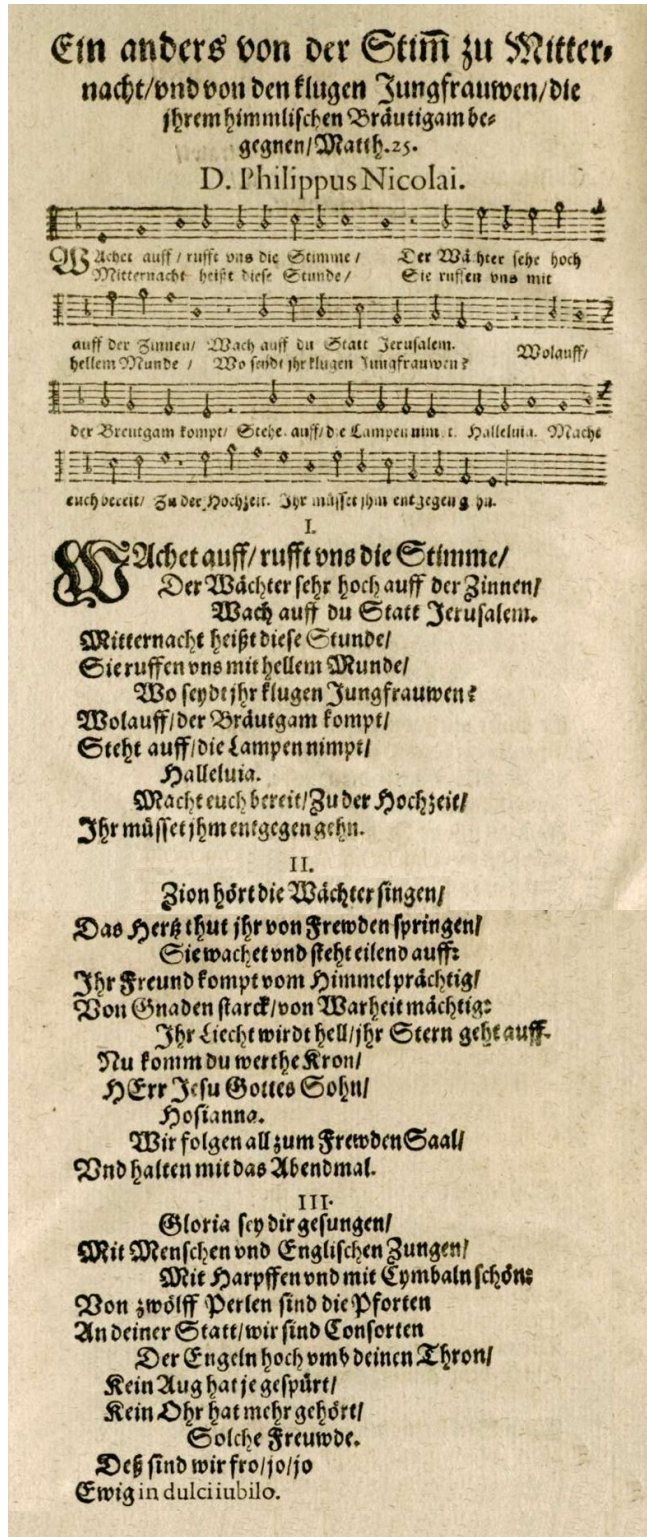 Ein anders von der Stim̅ zu Mitter⸗
nacht/vnd von den klugen Jungfrauwen/die
jhrem himmlischen Bräutigam be⸗
gegnen/Matth.25.
D. Philippus Nicolai.
WAchet auff / rufft vns die Stimme / Der Wächter sehr hoch
Mitternacht heißt diese Stunde / Sie ruffen vns mit
auff der Zinnen/ Wach auff du Statt Jerusalem. Wolauff/
hellem Munde / Wo seydt jhr klugen Jungfrauwen?
der Breutgam kompt/ Stehe auff/die Lampen nimpt. Halleluia. Macht
euch bereit/ Zu der Hochzeit. Jhr müsset jhm entgegen gehn.
I.
WAchet auff/rufft vns die Stimme/
Der Wächter sehr hoch auff der Zinnen/
Wach auff du Statt Jerusalem.
Mitternacht heißt diese Stunde/
Sie ruffen vns mit hellem Munde/
Wo seydt jhr klugen Jungfrauwen?
Wolauff/der Bräutgam kompt/
Steht auff/die Lampen nimpt/
Halleluia.
Macht euch bereit/Zu der Hochzeit/
Jhr müsset jhm entgegen gehn.
II.
Zion hört die Wächter singen/
Das Hertz thut jhr von Frewden springen/
Sie wachet vnd steht eilend auff:
Jhr Freund kompt vom Himmel prächtig/
Von Gnaden starck/von Warheit mächtig:
Jhr Liecht wirdt hell/jhr Stern geht auff.
Nu komm du werthe Kron/
HErr Jesu Gottes Sohn/
Hosianna.
Wir folgen all zum Frewden Saal/
Vnd halten mit das Abendmal.
III.
Gloria sey dir gesungen/
Mit Menschen vnd Englischen Zungen/
Mit Harpffen vnd mit Cymbaln schön:
Von zwölff Perlen sind die Pforten
An deiner Statt/wir sind Consorten
Der Engeln hoch vmb deinen Thron/
Kein Aug hat je gespürt/
Kein Ohr hat mehr gehört/
Solche Freuwde.
Deß sind wir fro/jo/jo
Ewig in dulci iubilo.